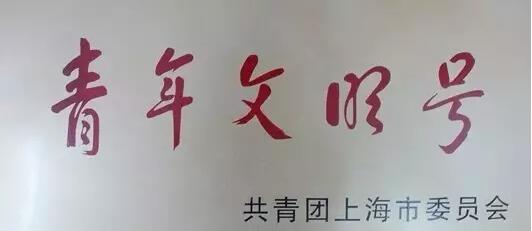 青年文明号
共青团上海市委员会